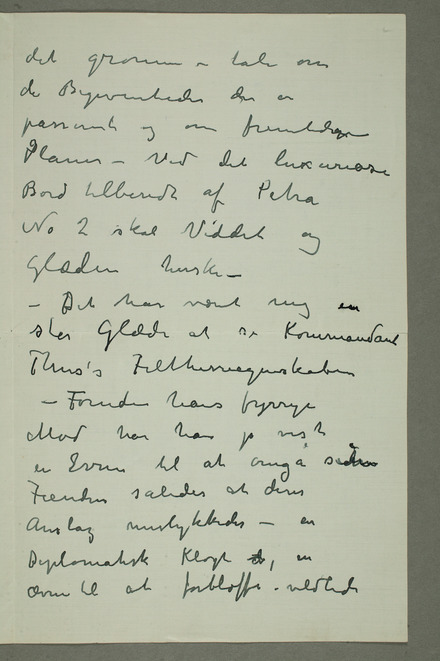 det grønne – tale om
de Begivenheder der er
passeret og om fremtidige
Planer – Ved det luxuriøse
Bord tilberedt af Petra
No 2 skal Viddet og
Glæden herske –
– Det har været mig en
stor Glæde at se Kommandant
Thiis's Feltherreegenskaber
– Foruden hans fyrrige
Mod har han jo vist
en Evne til at omgå
Fienden således at dens
Anslag mislykkedes – en
Diplomatisk Klogt, en
ævne til at forbløffe - vildlede